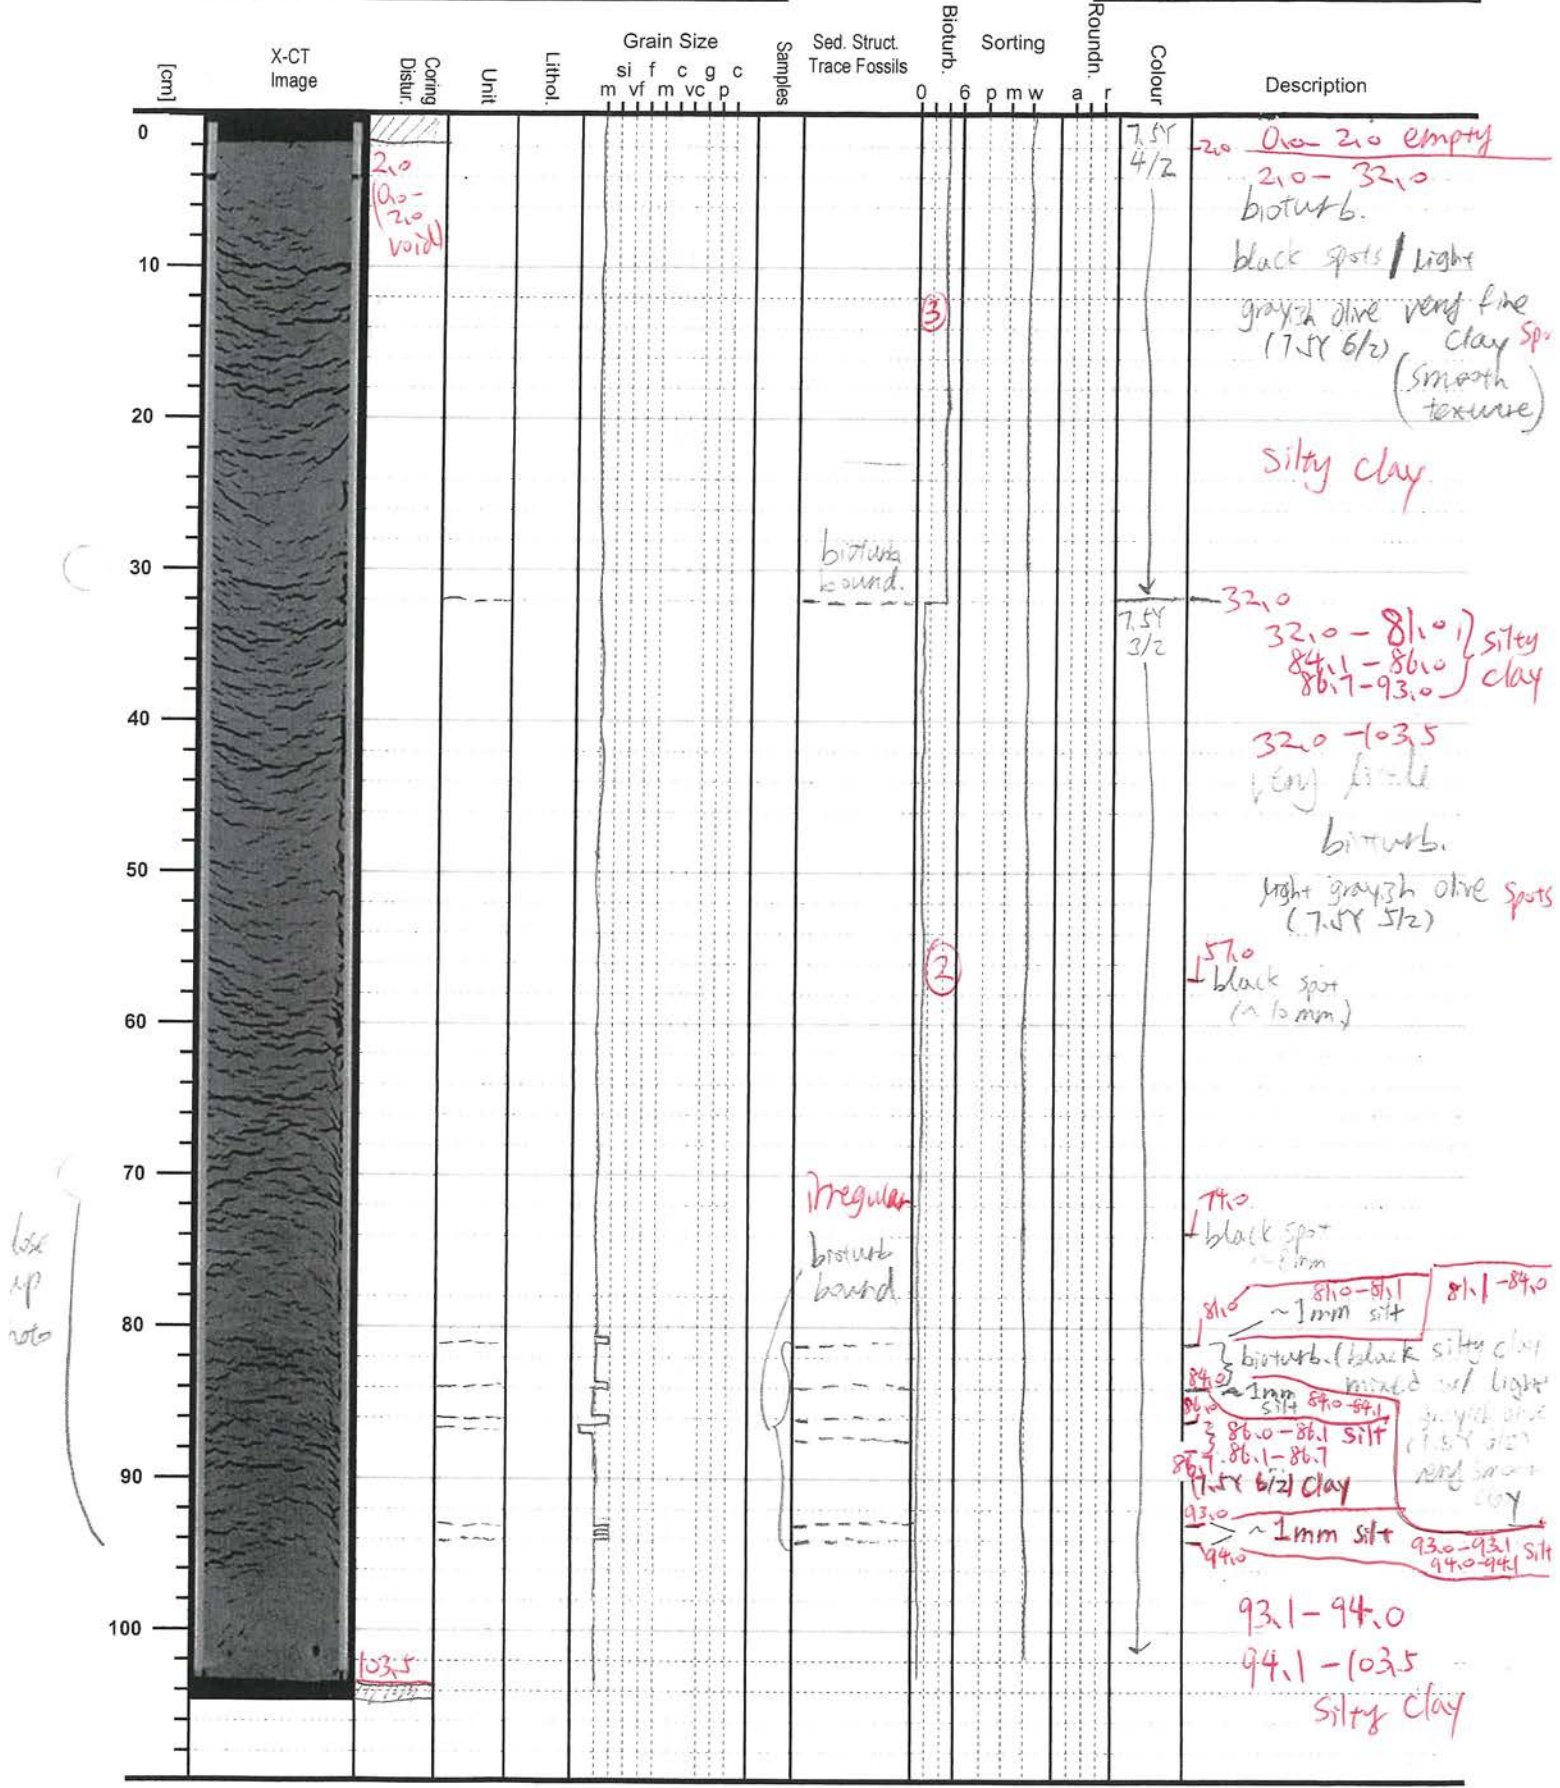 [cm]
X-CT
Image
Coring
Distur.
Unit
Lithol.
Grain Size
si f c g c
m vf m vc p
Samples
Sed. Struct.
Trace Fossils
Bioturb.
0 6
Sorting
p m w
Roundn.
a r
Colour
Description
0
10
20
30
40
50
60
70
80
90
100
2.0
(0.0-
2.0
void)
103.5
bioturb
bound.
irregular
bioturb
bound
3
2
7.5Y
4/2
7.5Y
3/2
2.0
0.0- 2.0 empty
2.0 - 32.0
bioturb.
black spots / light
grayish olive very fine
(7.5Y 6/2) clay
(smooth
texture)
Silty clay
32.0
32.0 - 81.0
84.1 - 86.0
86.7-93.0
silty
clay
32.0 -103.5
very little
bioturb.
light grayish olive spots
(7.5Y 5/2)
57.0
black spot
(~10mm)
74.0
black spot
81.0
81.0-81.1
~1mm silt
81.1-84.0
bioturb. (black silty clay
mixed w/ light
84.0
~1mm
silt 84.0-84.1
86.0
86.0-86.1 silt
86.7
86.1-86.7
(7.5Y 6/2) clay
93.0
~1mm silt
94.0
93.0-93.1
94.0-94.1
silt
93.1-94.0
94.1-103.5
Silty Clay